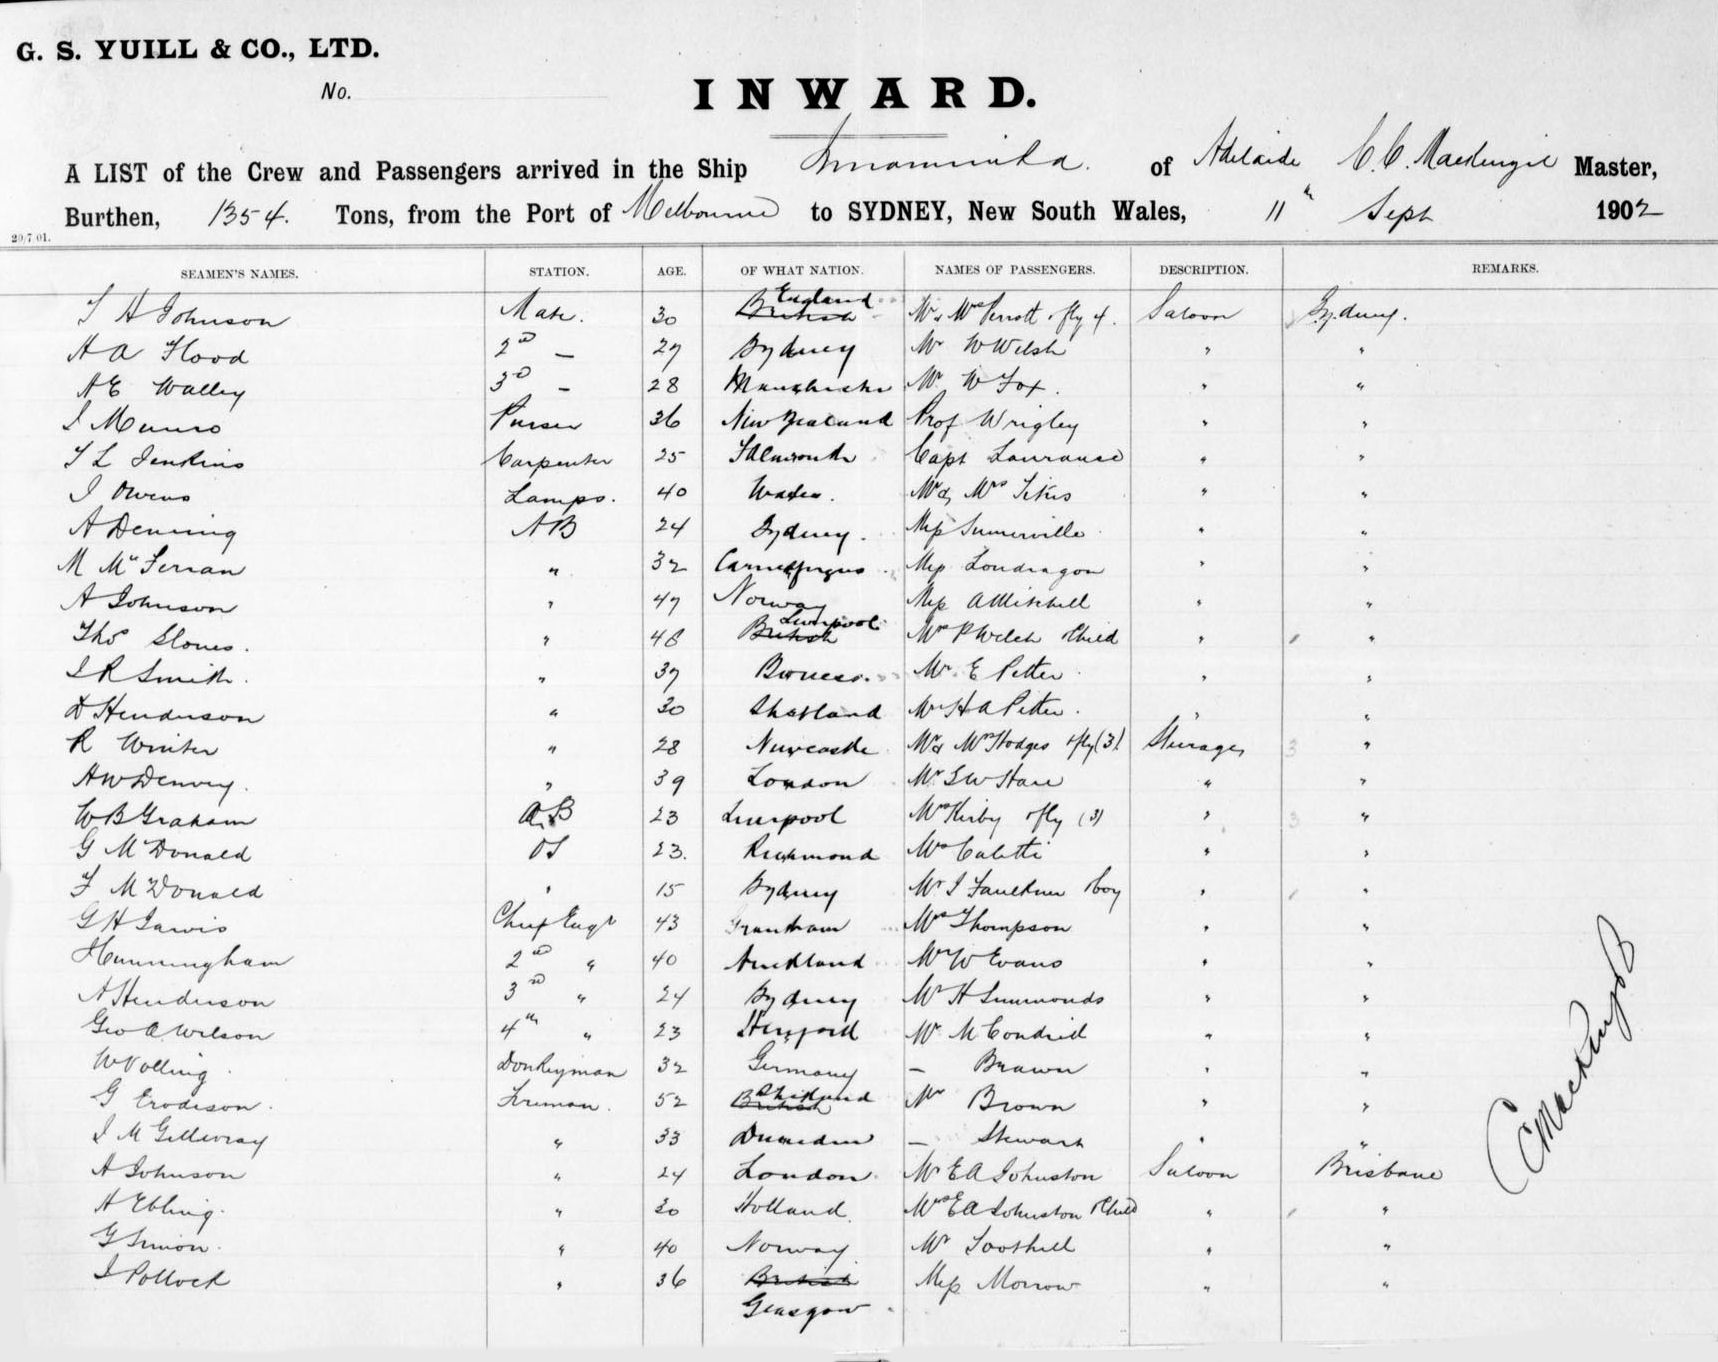 G. S. YUILL & CO., LTD.
No.
INWARD.
A LIST of the Crew and Passengers arrived in the Ship Innamincka. of Adelaide C. C. MacKenzie Master,
Burthen, 1354. Tons, from the Port of Melbourne to SYDNEY, New South Wales, 11th Sept 1902
20/7/01.
SEAMEN'S NAMES. STATION. AGE. OF WHAT NATION. NAMES OF PASSENGERS. DESCRIPTION. REMARKS.
T H Johnson Mate. 30 British England Mr & Mrs Perrott & fly 4. Saloon Sydney.
H A Flood 2nd — 27 Sydney Mr W Welsh " "
A E Walley 3rd — 28 Manchester Mr W Fox. " "
J Munro Purser 36 New Zealand Prof Wrigley " "
T L Jenkins Carpenter 25 Falmouth Capt Laurance " "
J Owens Lamps. 40 Wales. Mr & Mrs Titus " "
A Denning AB 24 Sydney. Miss Sumerville " "
M McFerran " 32 Carrickfergus Miss Londragon " "
A Johnson " 47 Norway Miss A Mitchell " "
Thos Slones. " 48 British Liverpool Mrs P Welch & Child " "
J R Smith. " 37 Boness. Mr E Petter " "
D Henderson " 30 Shetland Mr H A Petter. " "
R Winter " 28 Newcastle Mr & Mrs Hodges & fly (3) Steerage 3 "
H W Denvey. " 39 London Mr G W Hare " "
W B Graham AB 23 Liverpool Mrs Kirby & fly (3) " 3 "
G McDonald OS 23. Richmond Mrs " "
F McDonald " 15 Sydney Mr J Faulkner & boy " "
G H Jarvis Chief Engr 43 Grantham Mrs Thompson " "
H Cunningham 2nd " 40 Auckland Mr W Evans " "
A Henderson 3rd " 24 Sydney Mr H Summonds " "
Geo A Wilson 4th " 23 Mr M " "
W Volling. Donkeyman 32 Germany — Brawn " "
G Erodison. Fireman. 52 British Shetland Mr Brown " "
J McGillivray " 33 Dunedin — Stewart " "
A Johnson " 24 London. Mr E A Johnston Saloon Brisbane
H Ebling. " 30 Holland. Mrs E A Johnston & Child " "
G Simon. " 40 Norway Mr Toothill " "
J Pollock " 36 British Miss Morrow " "
Glasgow
C C MacKenzie